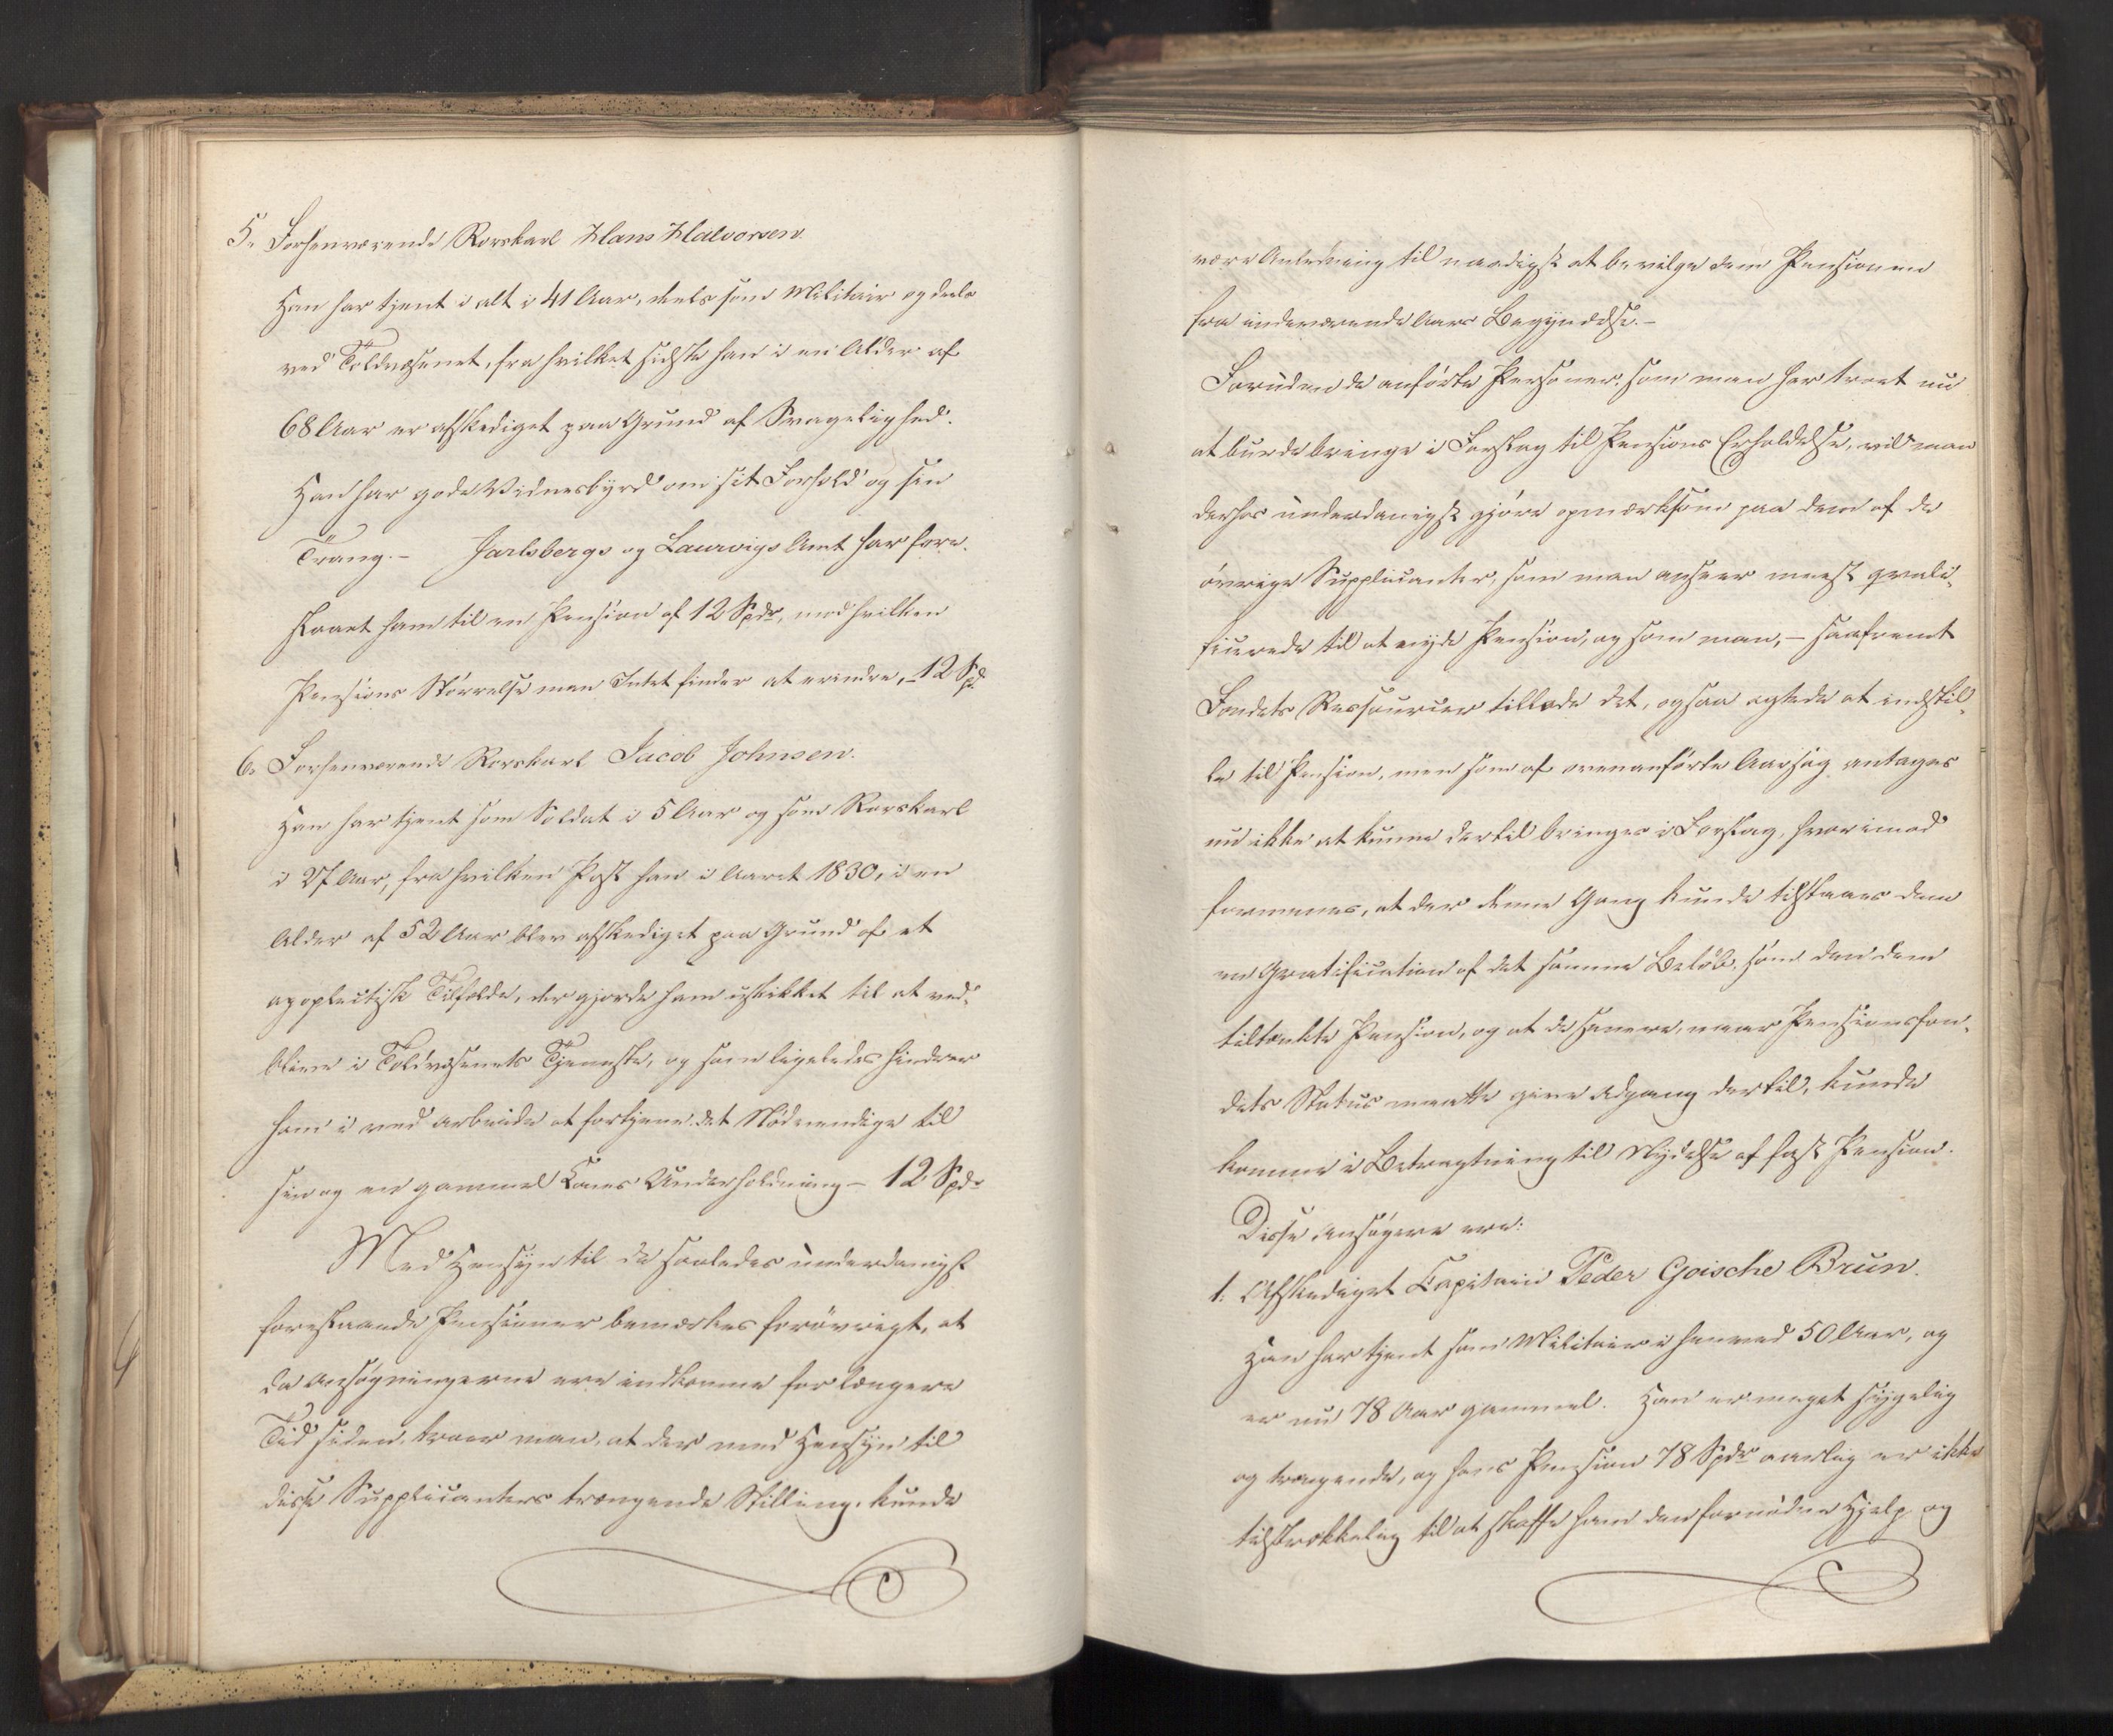 5. Forhenværende Rorskarl Hans Halvorsen.
Han har tjent i alt i 41 Aar, deels som Militair og deels
ved Toldvæsenet, fra hvilket sidste han i en Alder af
68 Aar er afskediget paa Grund af Svagelighed.
Han har gode Vidnesbyrd om sit Forhold og sin
Trang. – Jarlsbergs og Laurvigs Amt har fore-
slaaet ham til en Pension af 12 Spdr, mod hvilken
Pensions Störrelse man Intet finder at erindre, – 12 Spd.
6. Forhenværende Rorskarl Jacob Johnsen.
Han har tjent som Soldat i 5 Aar og som Rorskarl
i 27 Aar, fra hvilken Post han i Aaret 1830, i en
Alder af 52 Aar blev afskediget paa Grund af et
apoplectisk Tilfælde, der gjorde ham uskikket til at ved-
blive i Toldvæsenets Tjeneste, og som ligeledes hindrer
ham i ved Arbeide at fortjene det Nödvendige til
sin og en gammel Kones Underholdning – 12 Spdr
Med Hensyn til de saaledes underdanigst
foreslaaede Pensioner bemærkes forövrigt, at
da Ansögningerne ere indkomne for længere
Tid siden, troer man, at der med Hensyn til
disse Supplicanters trængende Stilling, kunde
være Anledning til naadigst at bevilge dem Pensionen
fra indeværende Aars Begyndelse. –
Foruden de anförte Personer, som man har troet nu
at burde bringe i Forslag til Pensions Erholdelse, vil man
derhos underdanigst gjöre opmærksom paa dem af de
övrige Supplicanter, som man anseer meest qvali-
ficerede til at nyde Pension, og som man, – saafremt
Fondets Ressourcer tillode det, ogsaa agtede at indstil-
le til Pension, men som af ovenanförte Aarsag antages
nu ikke at kunne dertil bringes i Forslag, hvorimod
formenes, at der denne Gang kunde tilstaaes dem
en Gratification af det samme Belöb, som den dem
tiltænkte Pension, og at de senere, naar Pensionsfon-
dets Status maatte give Adgang dertil, kunde
komme i Betragtning til Nydelse af fast Pension.
Disse Ansögere ere:
1. Afskediget Capitain Peder Goische Brun.
Han har tjent som Militair i henved 50 Aar, og
er nu 78 Aar gammel. Han er meget sygelig
og trængende, og hans Pension 78 Spdr aarlig er ikke
tilstrækkelig til at skaffe ham den fornödne Hjelp og